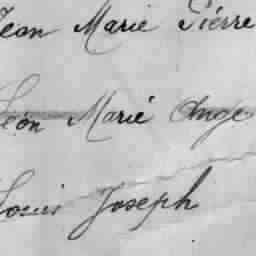 Jean Marie Pierre
Léon Marié Ange
Louis Joseph